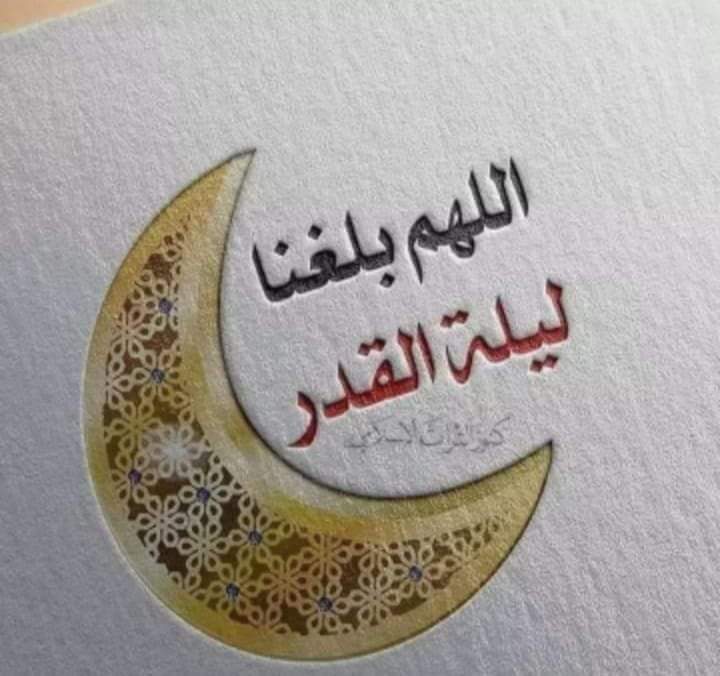 اللهم بلغنا
ليلة القدر